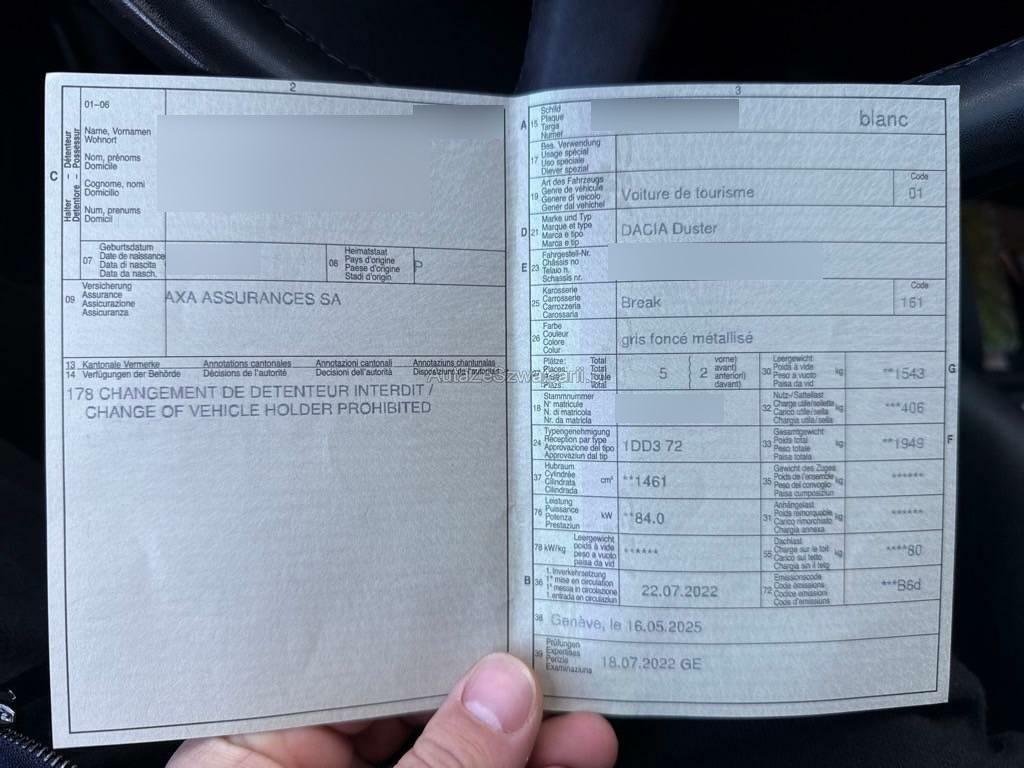 2
01-06
Name, Vornamen
Wohnort
Nom, prénoms
Domicile
Cognome, nomi
Domicilio
Num, prenums
Domicil
C
Halter - Détenteur
Detentore - Possessur
07
Geburtsdatum
Date de naissance
Data di nascita
Data da nasch.
08
Heimatstaat
Pays d'origine
Paese d'origine
Stadi d'origin
P
09
Versicherung
Assurance
Assicurazione
Assicuranza
AXA ASSURANCES SA
13 Kantonale Vermerke Annotations cantonales Annotazioni cantonali Annotaziuns chantunalas
14 Verfügungen der Behörde Décisions de l'autorité Decisioni dell'autorità Disposiziuns da l'autoritad
178 CHANGEMENT DE DETENTEUR INTERDIT /
CHANGE OF VEHICLE HOLDER PROHIBITED
AutazeSzwajcarii.
3
A 15
Schild
Plaque
Targa
Numer
blanc
17
Bes. Verwendung
Usage spécial
Uso speciale
Diever spezial
19
Art des Fahrzeugs
Genre de véhicule
Genere di veicolo
Gener dal vehichel
Voiture de tourisme
Code
01
D 21
Marke und Typ
Marque et type
Marca e tipo
Marca e tip
DACIA Duster
E 23
Fahrgestell-Nr.
Châssis no
Telaio n.
Schassis nr.
25
Karosserie
Carrosserie
Carrozzeria
Carossaria
Break
Code
161
26
Farbe
Couleur
Colore
Colur
gris foncé métallisé
27
Plätze: Total
Places: Total
Posti: Totale
Plazs: Total
5 ( 2
vorne)
avant)
anteriori)
davant)
30
Leergewicht
Poids à vide
Peso a vuoto
Paisa da vid
kg
**1543
G
18
Stammnummer
N° matricule
N. di matricola
Nr. da matricla
32
Nutz-/Sattellast
Charge utile/sellette
Carico utile/sella
Chargia utila/sella
kg
***406
24
Typengenehmigung
Réception par type
Approvazione del tipo
Approvaziun dal tip
1DD3 72
33
Gesamtgewicht
Poids total
Peso totale
Paisa totala
kg
**1949
F
37
Hubraum
Cylindrée
Cilindrata
Cilindrada
cm³
**1461
35
Gewicht des Zuges
Poids de l'ensemble
Peso del convoglio
Paisa cumposiziun
kg
******
76
Leistung
Puissance
Potenza
Prestaziun
kW
**84.0
31
Anhängelast
Poids remorquable
Carico rimorchiato
Chargia annexa
kg
******
78 kW/kg
Leergewicht
poids à vide
peso a vuoto
paisa da vid
******
55
Dachlast
Charge sur le toit
Carico sul tetto
Chargia sin il tetg
kg
****80
B 36
1. Inverkehrsetzung
1re mise en circulation
1a messa in circolazione
1. entrada en circulaziun
22.07.2022
72
Emissionscode
Code émissions
Codice emissioni
Code d'emissiuns
***B6d
38 Genève, le 16.05.2025
39
Prüfungen
Expertises
Perizie
Examinaziuns
18.07.2022 GE